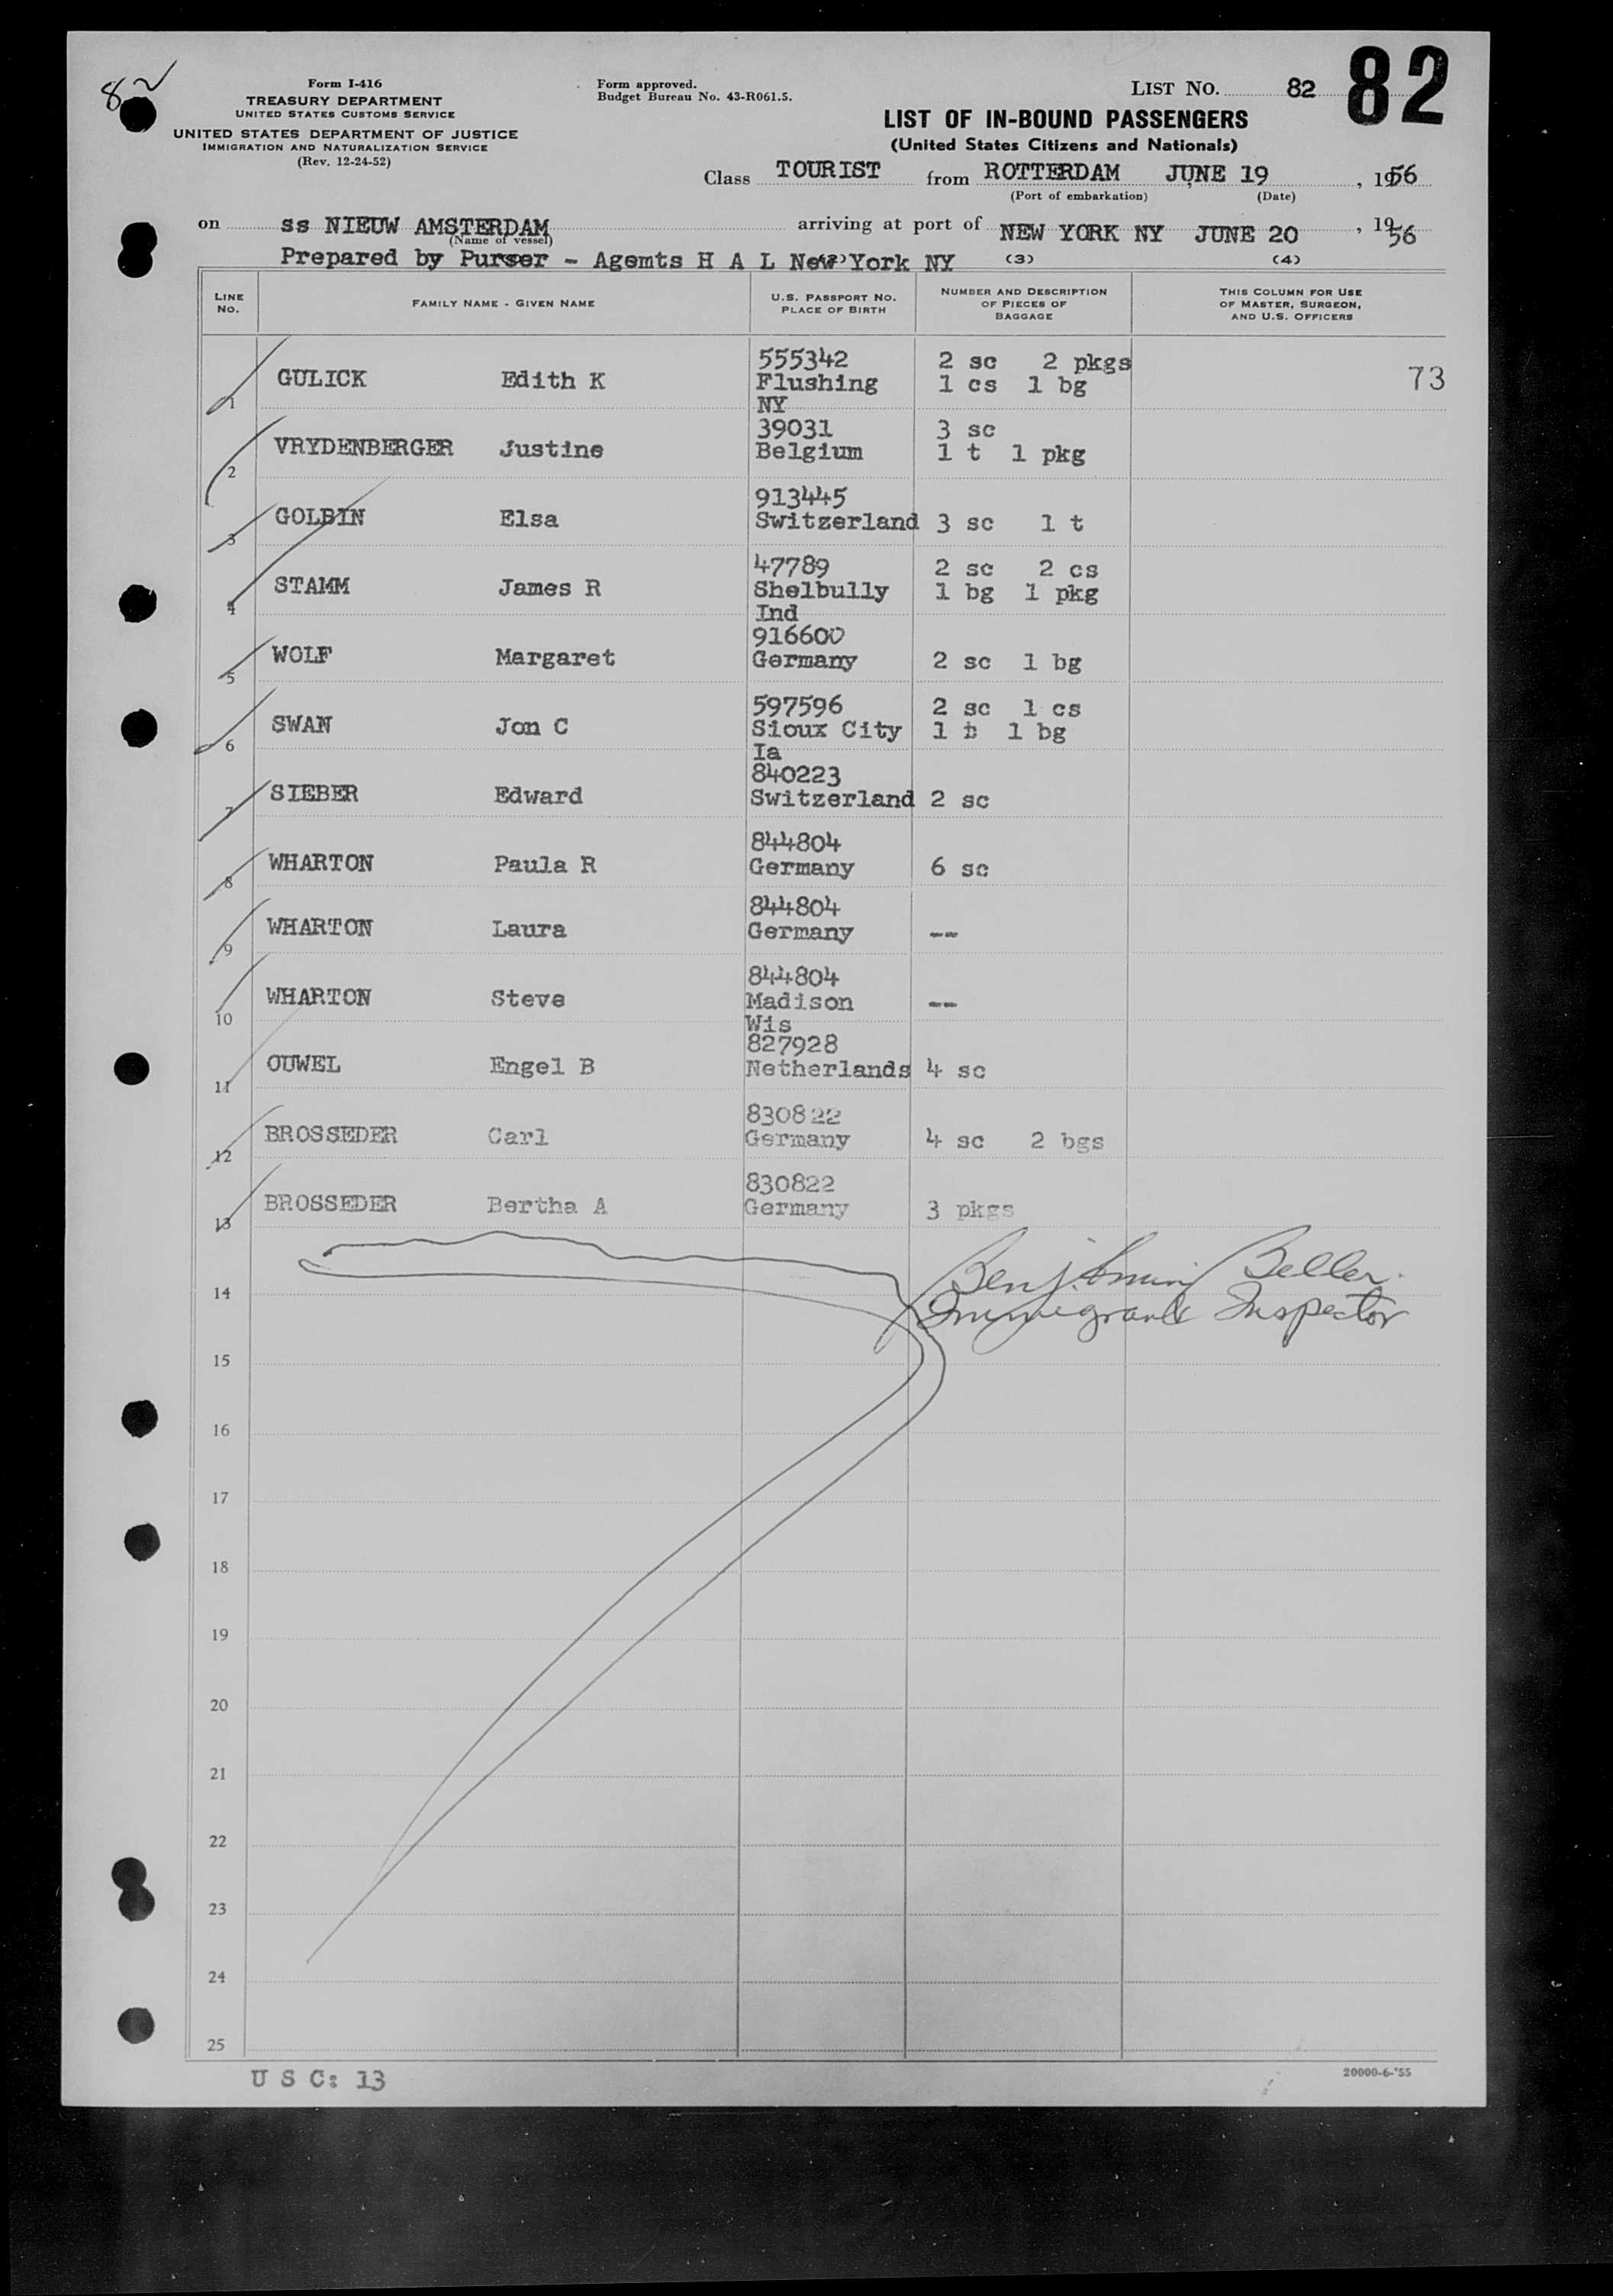 82
Form I-416
TREASURY DEPARTMENT
UNITED STATES CUSTOMS SERVICE
UNITED STATES DEPARTMENT OF JUSTICE
IMMIGRATION AND NATURALIZATION SERVICE
(Rev. 12-24-52)
Form approved.
Budget Bureau No. 43-R061.5.
LIST NO. 82
82
LIST OF IN-BOUND PASSENGERS
(United States Citizens and Nationals)
Class TOURIST from ROTTERDAM JUNE 19, 1956
(Port of embarkation) (Date)
on ss NIEUW AMSTERDAM arriving at port of NEW YORK NY JUNE 20, 1956
(Name of vessel)
Prepared by Purser - Agemts H A L New York NY (3) (4)
LINE NO. FAMILY NAME - GIVEN NAME U.S. PASSPORT NO. PLACE OF BIRTH NUMBER AND DESCRIPTION OF PIECES OF BAGGAGE THIS COLUMN FOR USE OF MASTER, SURGEON, AND U.S. OFFICERS
1 GULICK Edith K 555342 Flushing NY 2 sc 2 pkgs 1 cs 1 bg 73
2 VRYDENBERGER Justine 39031 Belgium 3 sc 1 t 1 pkg
3 GOLBIN Elsa 913445 Switzerland 3 sc 1 t
4 STAMM James R 47789 Shelbully Ind 2 sc 2 cs 1 bg 1 pkg
5 WOLF Margaret 916600 Germany 2 sc 1 bg
6 SWAN Jon C 597596 Sioux City Ia 2 sc 1 cs 1 t 1 bg
7 SIEBER Edward 840223 Switzerland 2 sc
8 WHARTON Paula R 844804 Germany 6 sc
9 WHARTON Laura 844804 Germany --
10 WHARTON Steve 844804 Madison Wis --
11 OUWEL Engel B 827928 Netherlands 4 sc
12 BROSSEDER Carl 830822 Germany 4 sc 2 bgs
13 BROSSEDER Bertha A 830822 Germany 3 pkgs
Benjamin Beller
14
Immigrant Inspector
15
16
17
18
19
20
21
22
23
24
25
U S C: 13
20000-6-'55